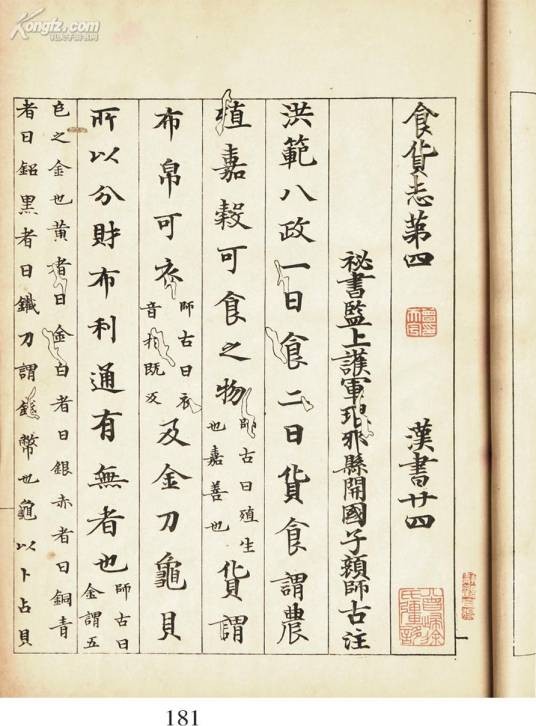 Kongfz.com
孔夫子旧书网
食貨志第四 漢書廿四
祕書監上護軍琅邪縣開國子顏師古注
洪範八政一曰食二曰貨食謂農
殖嘉穀可食之物師古曰殖生也嘉善也貨謂
布帛可衣師古曰衣音於既反及金刀龜貝
所以分財布利通有無者也師古曰金謂五
色之金也黃者曰金白者曰銀赤者曰銅青
者曰鉛黑者曰鐵刀謂錢幣也龜以卜占貝
181